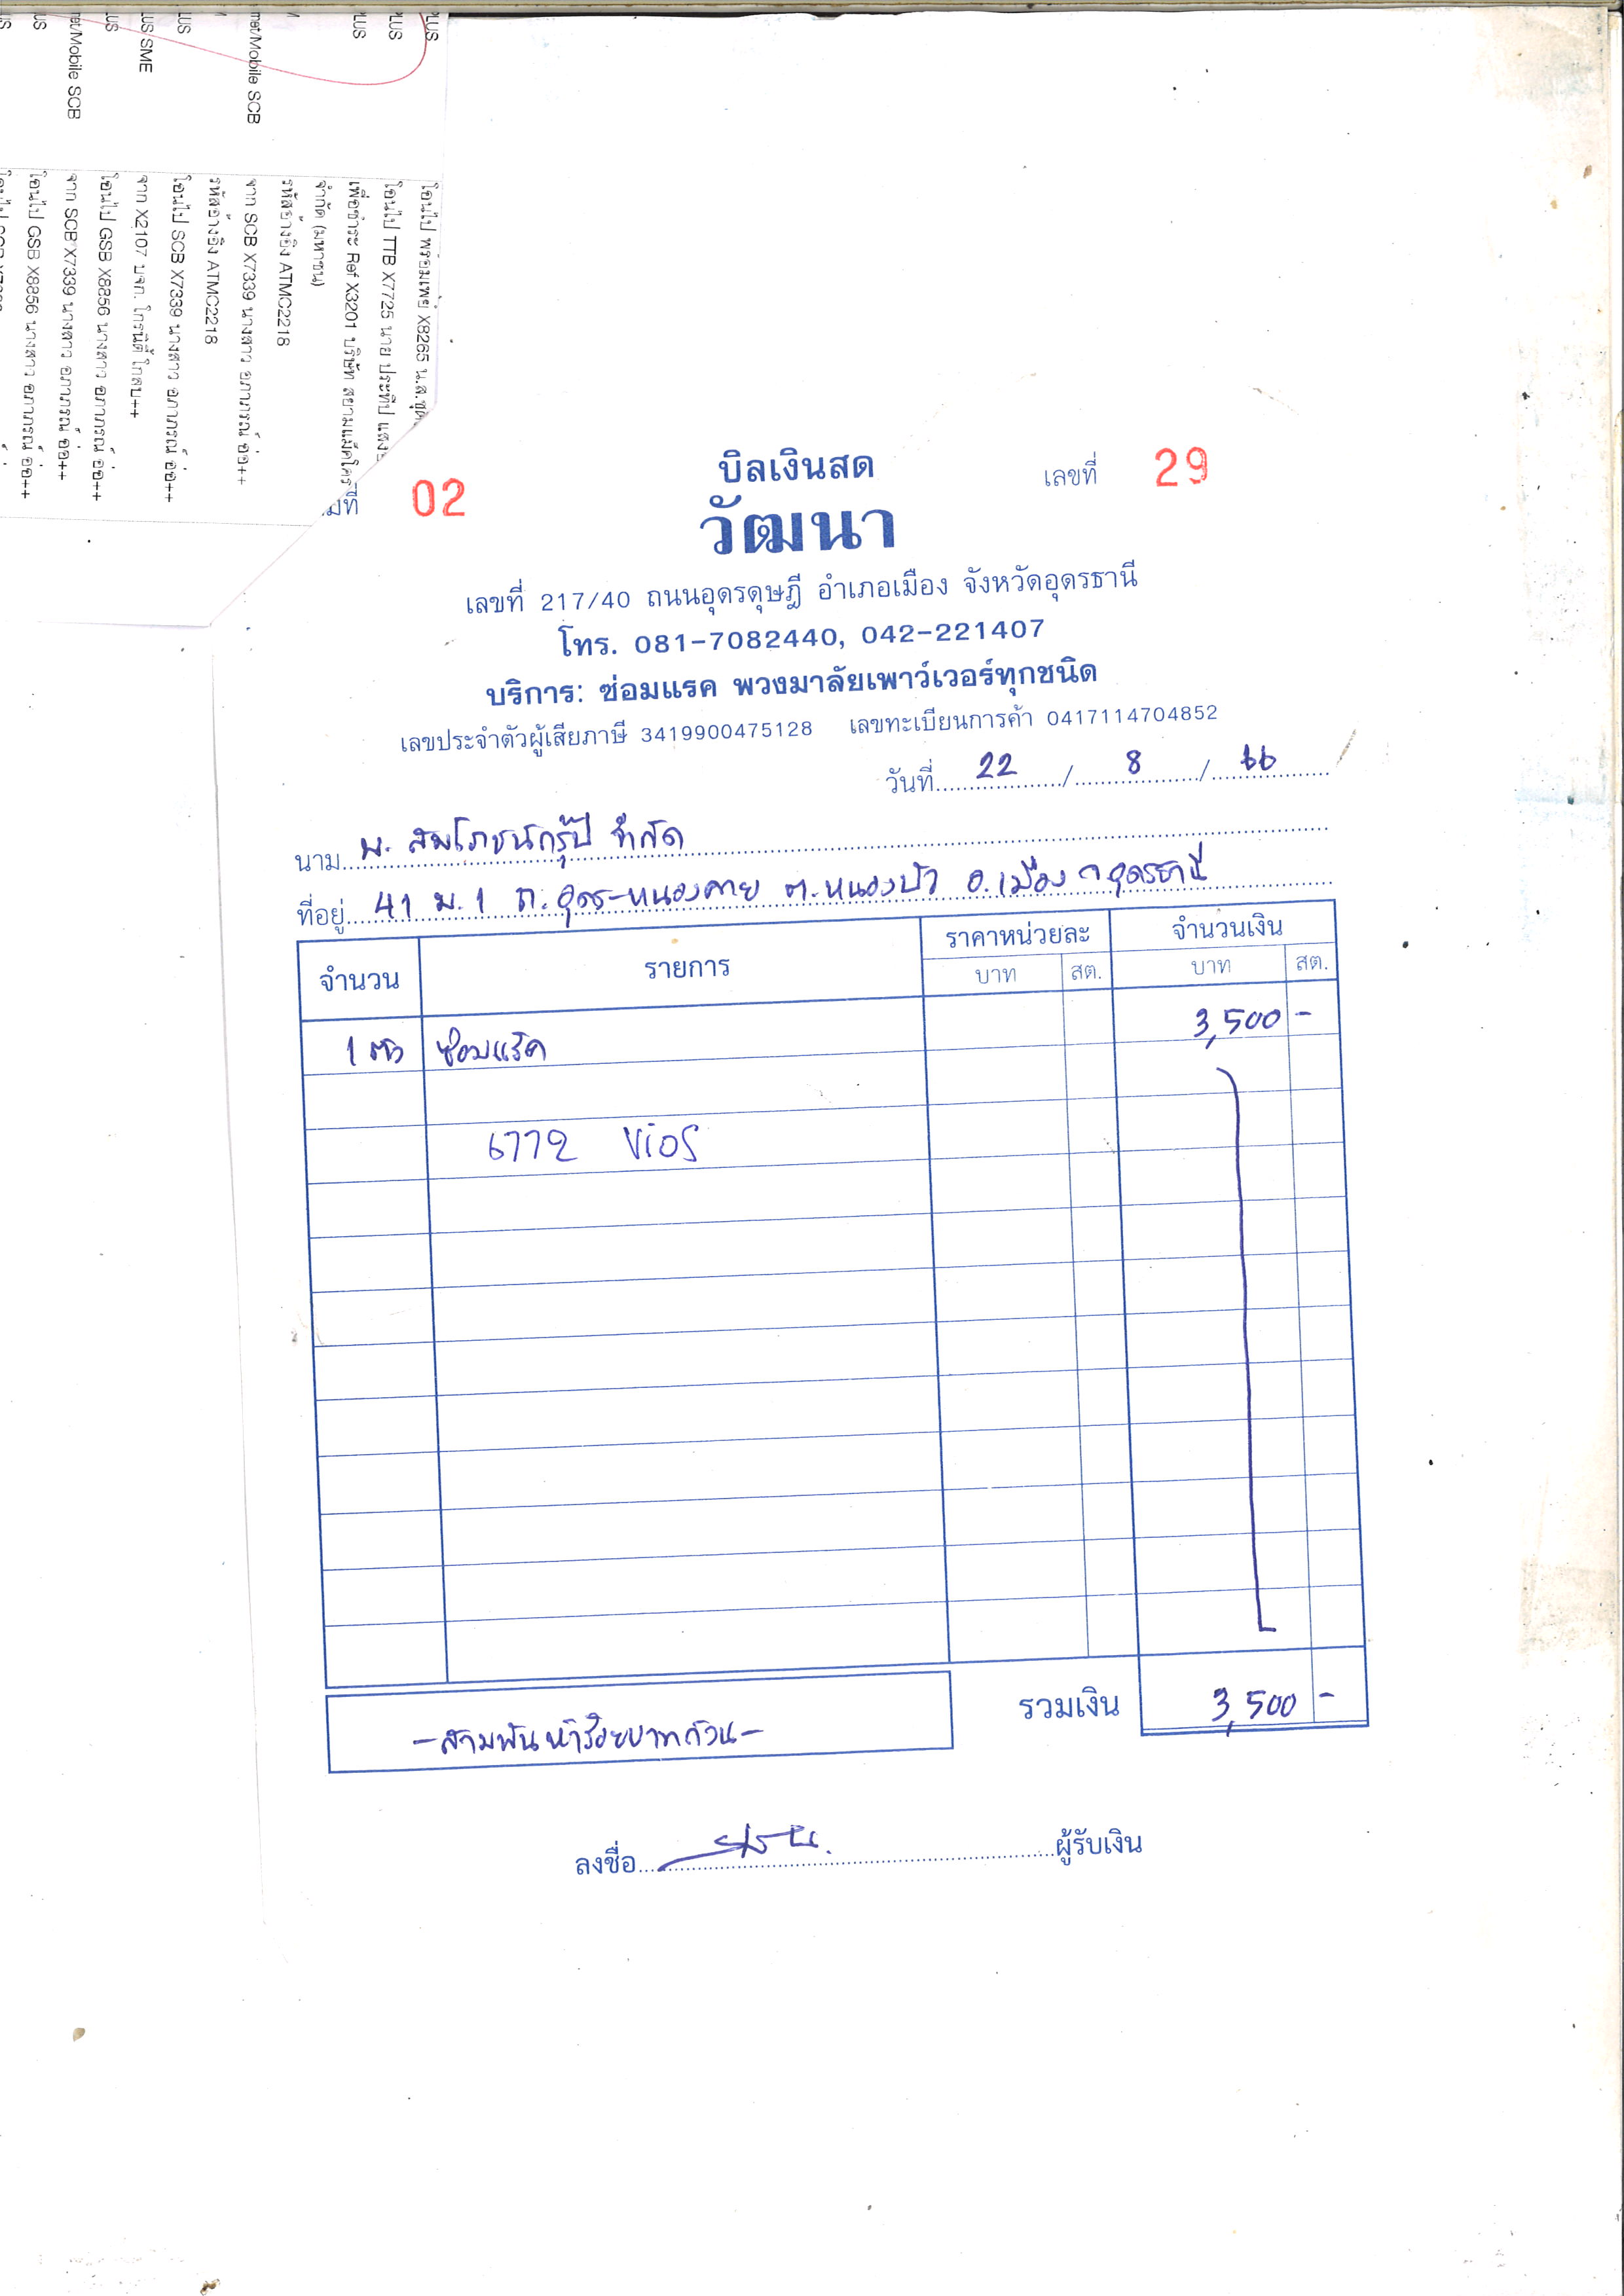 บิลเงินสด
มที่ 02
เลขที่ 29
วัฒนา
เลขที่ 217/40 ถนนอุดรดุษฎี อำเภอเมือง จังหวัดอุดรธานี
โทร. 081-7082440, 042-221407
บริการ: ซ่อมแรค พวงมาลัยเพาว์เวอร์ทุกชนิด
เลขประจำตัวผู้เสียภาษี 3419900475128 เลขทะเบียนการค้า 0417114704852
วันที่ 22 / 8 / 66
นาม บ. สมโภชน์กรุ๊ป จำกัด
ที่อยู่ 41 ม.1 ถ.อุดร-หนองคาย ต.หนองบัว อ.เมือง จ.อุดรธานี
จำนวน รายการ ราคาหน่วยละ จำนวนเงิน
บาท สต. บาท สต.
1 ตัว ซ่อมแร็ค 3,500 -
6772 Vios
รวมเงิน 3,500 -
-สามพันห้าร้อยบาทถ้วน-
ลงชื่อ ผู้รับเงิน
โอนไป พร้อมเพย์ X8265 น.ส.
โอนไป TTB X7725 นาย ประทีป
เพื่อชำระ Ref X3201 บริษัท สยามแม็คโคร
จำกัด (มหาชน)
รหัสอ้างอิง ATMC2218
จาก SCB X7339 นางสาว อภาภรณ์ อ่อ++
รหัสอ้างอิง ATMC2218
โอนไป SCB X7339 นางสาว อภาภรณ์ อ่อ++
จาก X2107 บจก. โกรนิตี้ โกลบ++
โอนไป GSB X8856 นางสาว อภาภรณ์ อ่อ++
จาก SCB X7339 นางสาว อภาภรณ์ อ่อ++
โอนไป GSB X8856 นางสาว อภาภรณ์ อ่อ++
PLUS
PLUS
LUS
net/Mobile SCB
LUS
LUS SME
LUS
net/Mobile SCB
LUS